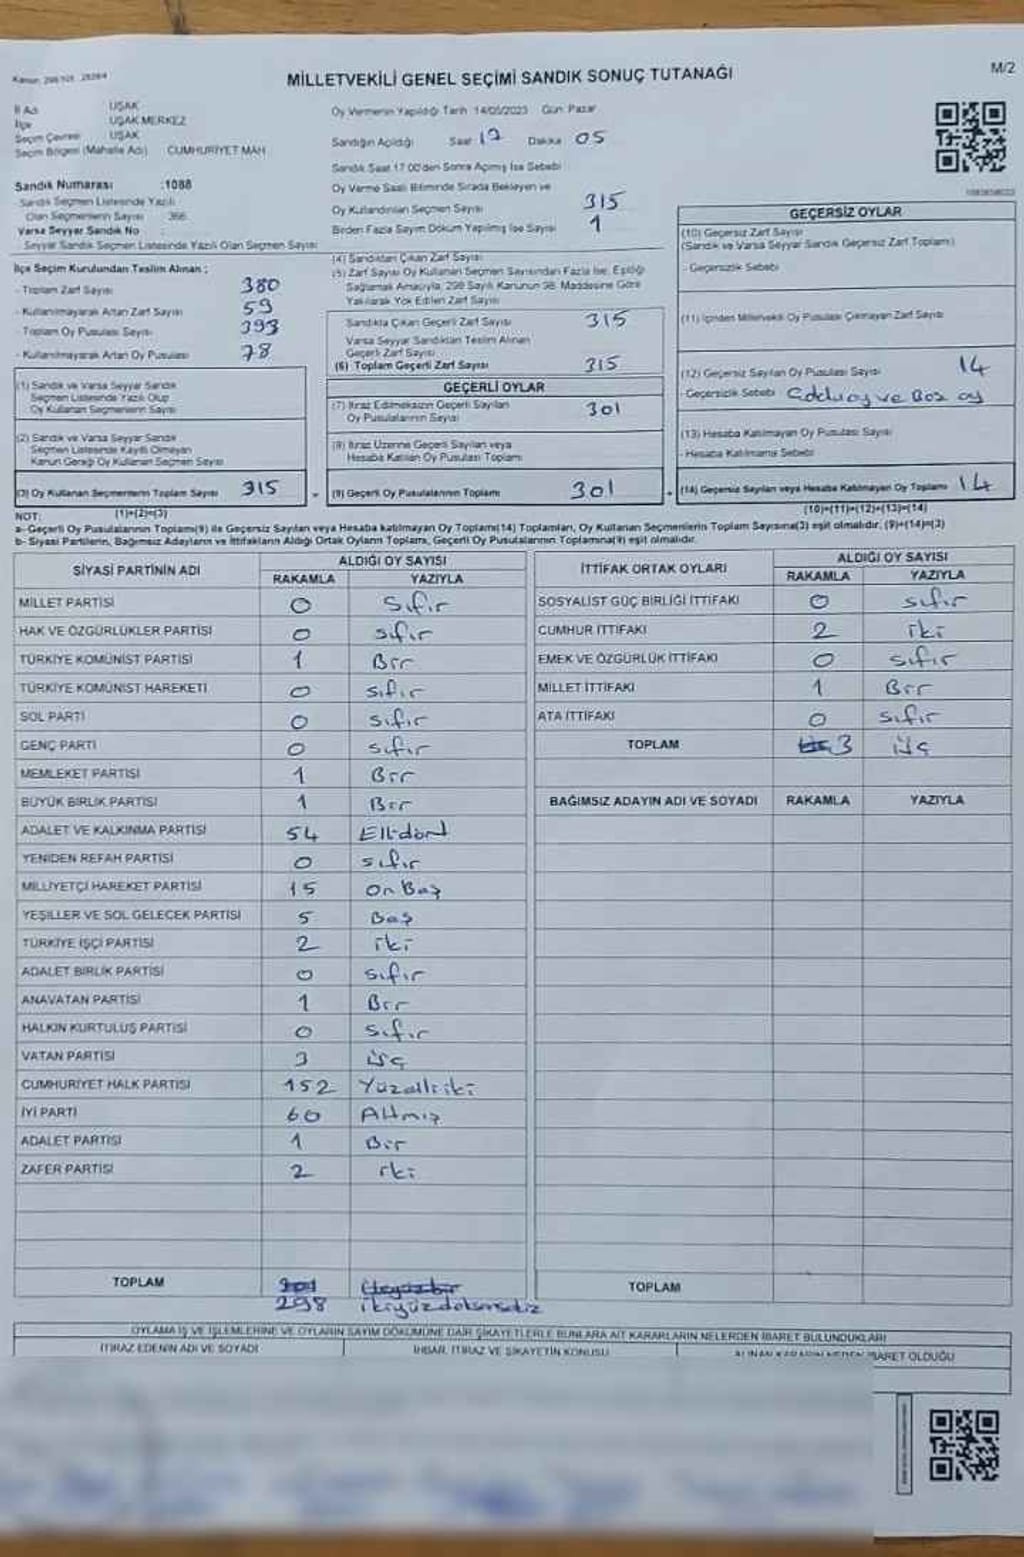 MİLLETVEKİLİ GENEL SEÇİMİ SANDIK SONUÇ TUTANAĞI
M/2
İl Adı UŞAK
İlçe UŞAK MERKEZ
Seçim Çevresi UŞAK
Seçim Bölgesi (Mahalle Adı) CUMHURİYET MAH
Sandık Numarası :1088
Sandık Seçmen Listesinde Yazılı
Olan Seçmenlerin Sayısı 366
Varsa Seyyar Sandık No
Seyyar Sandık Seçmen Listesinde Yazılı Olan Seçmen Sayısı
İlçe Seçim Kurulundan Teslim Alınan ;
- Toplam Zarf Sayısı 380
- Kullanılmayarak Artan Zarf Sayısı 59
- Toplam Oy Pusulası Sayısı 393
- Kullanılmayarak Artan Oy Pusulası 78
(1) Sandık ve Varsa Seyyar Sandık
Seçmen Listesinde Yazılı Olup
Oy Kullanan Seçmenlerin Sayısı
(2) Sandık ve Varsa Seyyar Sandık
Seçmen Listesinde Kayıtlı Olmayan
Kanun Gereği Oy Kullanan Seçmen Sayısı
(3) Oy Kullanan Seçmenlerin Toplam Sayısı 315
(1)+(2)=(3)
Oy Vermenin Yapıldığı Tarih 14/05/2023 Gün Pazar
Sandığın Açıldığı Saat 17 Dakika 05
Sandık Saat 17:00'den Sonra Açılmış İse Sebebi
Oy Verme Saati Bitiminde Sırada Bekleyen ve
Oy Kullandırılan Seçmen Sayısı 315
Birden Fazla Sayım Döküm Yapılmış İse Sayısı 1
(4) Sandıktan Çıkan Zarf Sayısı
(5) Zarf Sayısı Oy Kullanan Seçmen Sayısından Fazla İse, Eşitliği
Sağlamak Amacıyla, 298 Sayılı Kanunun 98. Maddesine Göre
Yakılarak Yok Edilen Zarf Sayısı
Sandıkta Çıkan Geçerli Zarf Sayısı 315
Varsa Seyyar Sandıktan Teslim Alınan
Geçerli Zarf Sayısı
(6) Toplam Geçerli Zarf Sayısı 315
GEÇERLİ OYLAR
(7) İtiraz Edilmeksizin Geçerli Sayılan
Oy Pusulalarının Sayısı 301
(8) İtiraz Üzerine Geçerli Sayılan veya
Hesaba Katılan Oy Pusulası Toplamı
(9) Geçerli Oy Pusulalarının Toplamı 301
GEÇERSİZ OYLAR
(10) Geçersiz Zarf Sayısı
(Sandık ve Varsa Seyyar Sandık Geçersiz Zarf Toplamı)
- Geçersizlik Sebebi
(11) İçinden Milletvekili Oy Pusulası Çıkmayan Zarf Sayısı
(12) Geçersiz Sayılan Oy Pusulası Sayısı 14
- Geçersizlik Sebebi ve Boş oy
(13) Hesaba Katılmayan Oy Pusulası Sayısı
- Hesaba Katılmama Sebebi
(14) Geçersiz Sayılan veya Hesaba Katılmayan Oy Toplamı 14
(10)+(11)+(12)+(13)=(14)
NOT:
a- Geçerli Oy Pusulalarının Toplamı(9) ile Geçersiz Sayılan veya Hesaba katılmayan Oy Toplamı(14) Toplamları, Oy Kullanan Seçmenlerin Toplam Sayısına(3) eşit olmalıdır. (9)+(14)=(3)
b- Siyasi Partilerin, Bağımsız Adayların ve İttifakların Aldığı Ortak Oyların Toplamı, Geçerli Oy Pusulalarının Toplamına(9) eşit olmalıdır.
SİYASİ PARTİNİN ADI ALDIĞI OY SAYISI
RAKAMLA YAZIYLA
MİLLET PARTİSİ 0 Sıfır
HAK VE ÖZGÜRLÜKLER PARTİSİ 0 sıfır
TÜRKİYE KOMÜNİST PARTİSİ 1 Bir
TÜRKİYE KOMÜNİST HAREKETİ 0 sıfır
SOL PARTİ 0 sıfır
GENÇ PARTİ 0 sıfır
MEMLEKET PARTİSİ 1 Bir
BÜYÜK BİRLİK PARTİSİ 1 Bir
ADALET VE KALKINMA PARTİSİ 54 Ellidört
YENİDEN REFAH PARTİSİ 0 sıfır
MİLLİYETÇİ HAREKET PARTİSİ 15 On Beş
YEŞİLLER VE SOL GELECEK PARTİSİ 5 Beş
TÜRKİYE İŞÇİ PARTİSİ 2 iki
ADALET BİRLİK PARTİSİ 0 sıfır
ANAVATAN PARTİSİ 1 Bir
HALKIN KURTULUŞ PARTİSİ 0 sıfır
VATAN PARTİSİ 3 üç
CUMHURİYET HALK PARTİSİ 152 Yüzelliiki
İYİ PARTİ 60 Altmış
ADALET PARTİSİ 1 Bir
ZAFER PARTİSİ 2 iki
TOPLAM 301 Üçyüzbir
298 ikiyüzdoksansekiz
İTTİFAK ORTAK OYLARI ALDIĞI OY SAYISI
RAKAMLA YAZIYLA
SOSYALİST GÜÇ BİRLİĞİ İTTİFAKI 0 sıfır
CUMHUR İTTİFAKI 2 iki
EMEK VE ÖZGÜRLÜK İTTİFAKI 0 sıfır
MİLLET İTTİFAKI 1 Bir
ATA İTTİFAKI 0 sıfır
TOPLAM 3 üç
BAĞIMSIZ ADAYIN ADI VE SOYADI RAKAMLA YAZIYLA
TOPLAM
OYLAMA İŞ VE İŞLEMLERİNE VE OYLARIN SAYIM DÖKÜMÜNE DAİR ŞİKAYETLERLE BUNLARA AİT KARARLARIN NELERDEN İBARET BULUNDUKLARI
İTİRAZ EDENİN ADI VE SOYADI İHBAR, İTİRAZ VE ŞİKAYETİN KONUSU ALINAN KARARIN NEDEN İBARET OLDUĞU